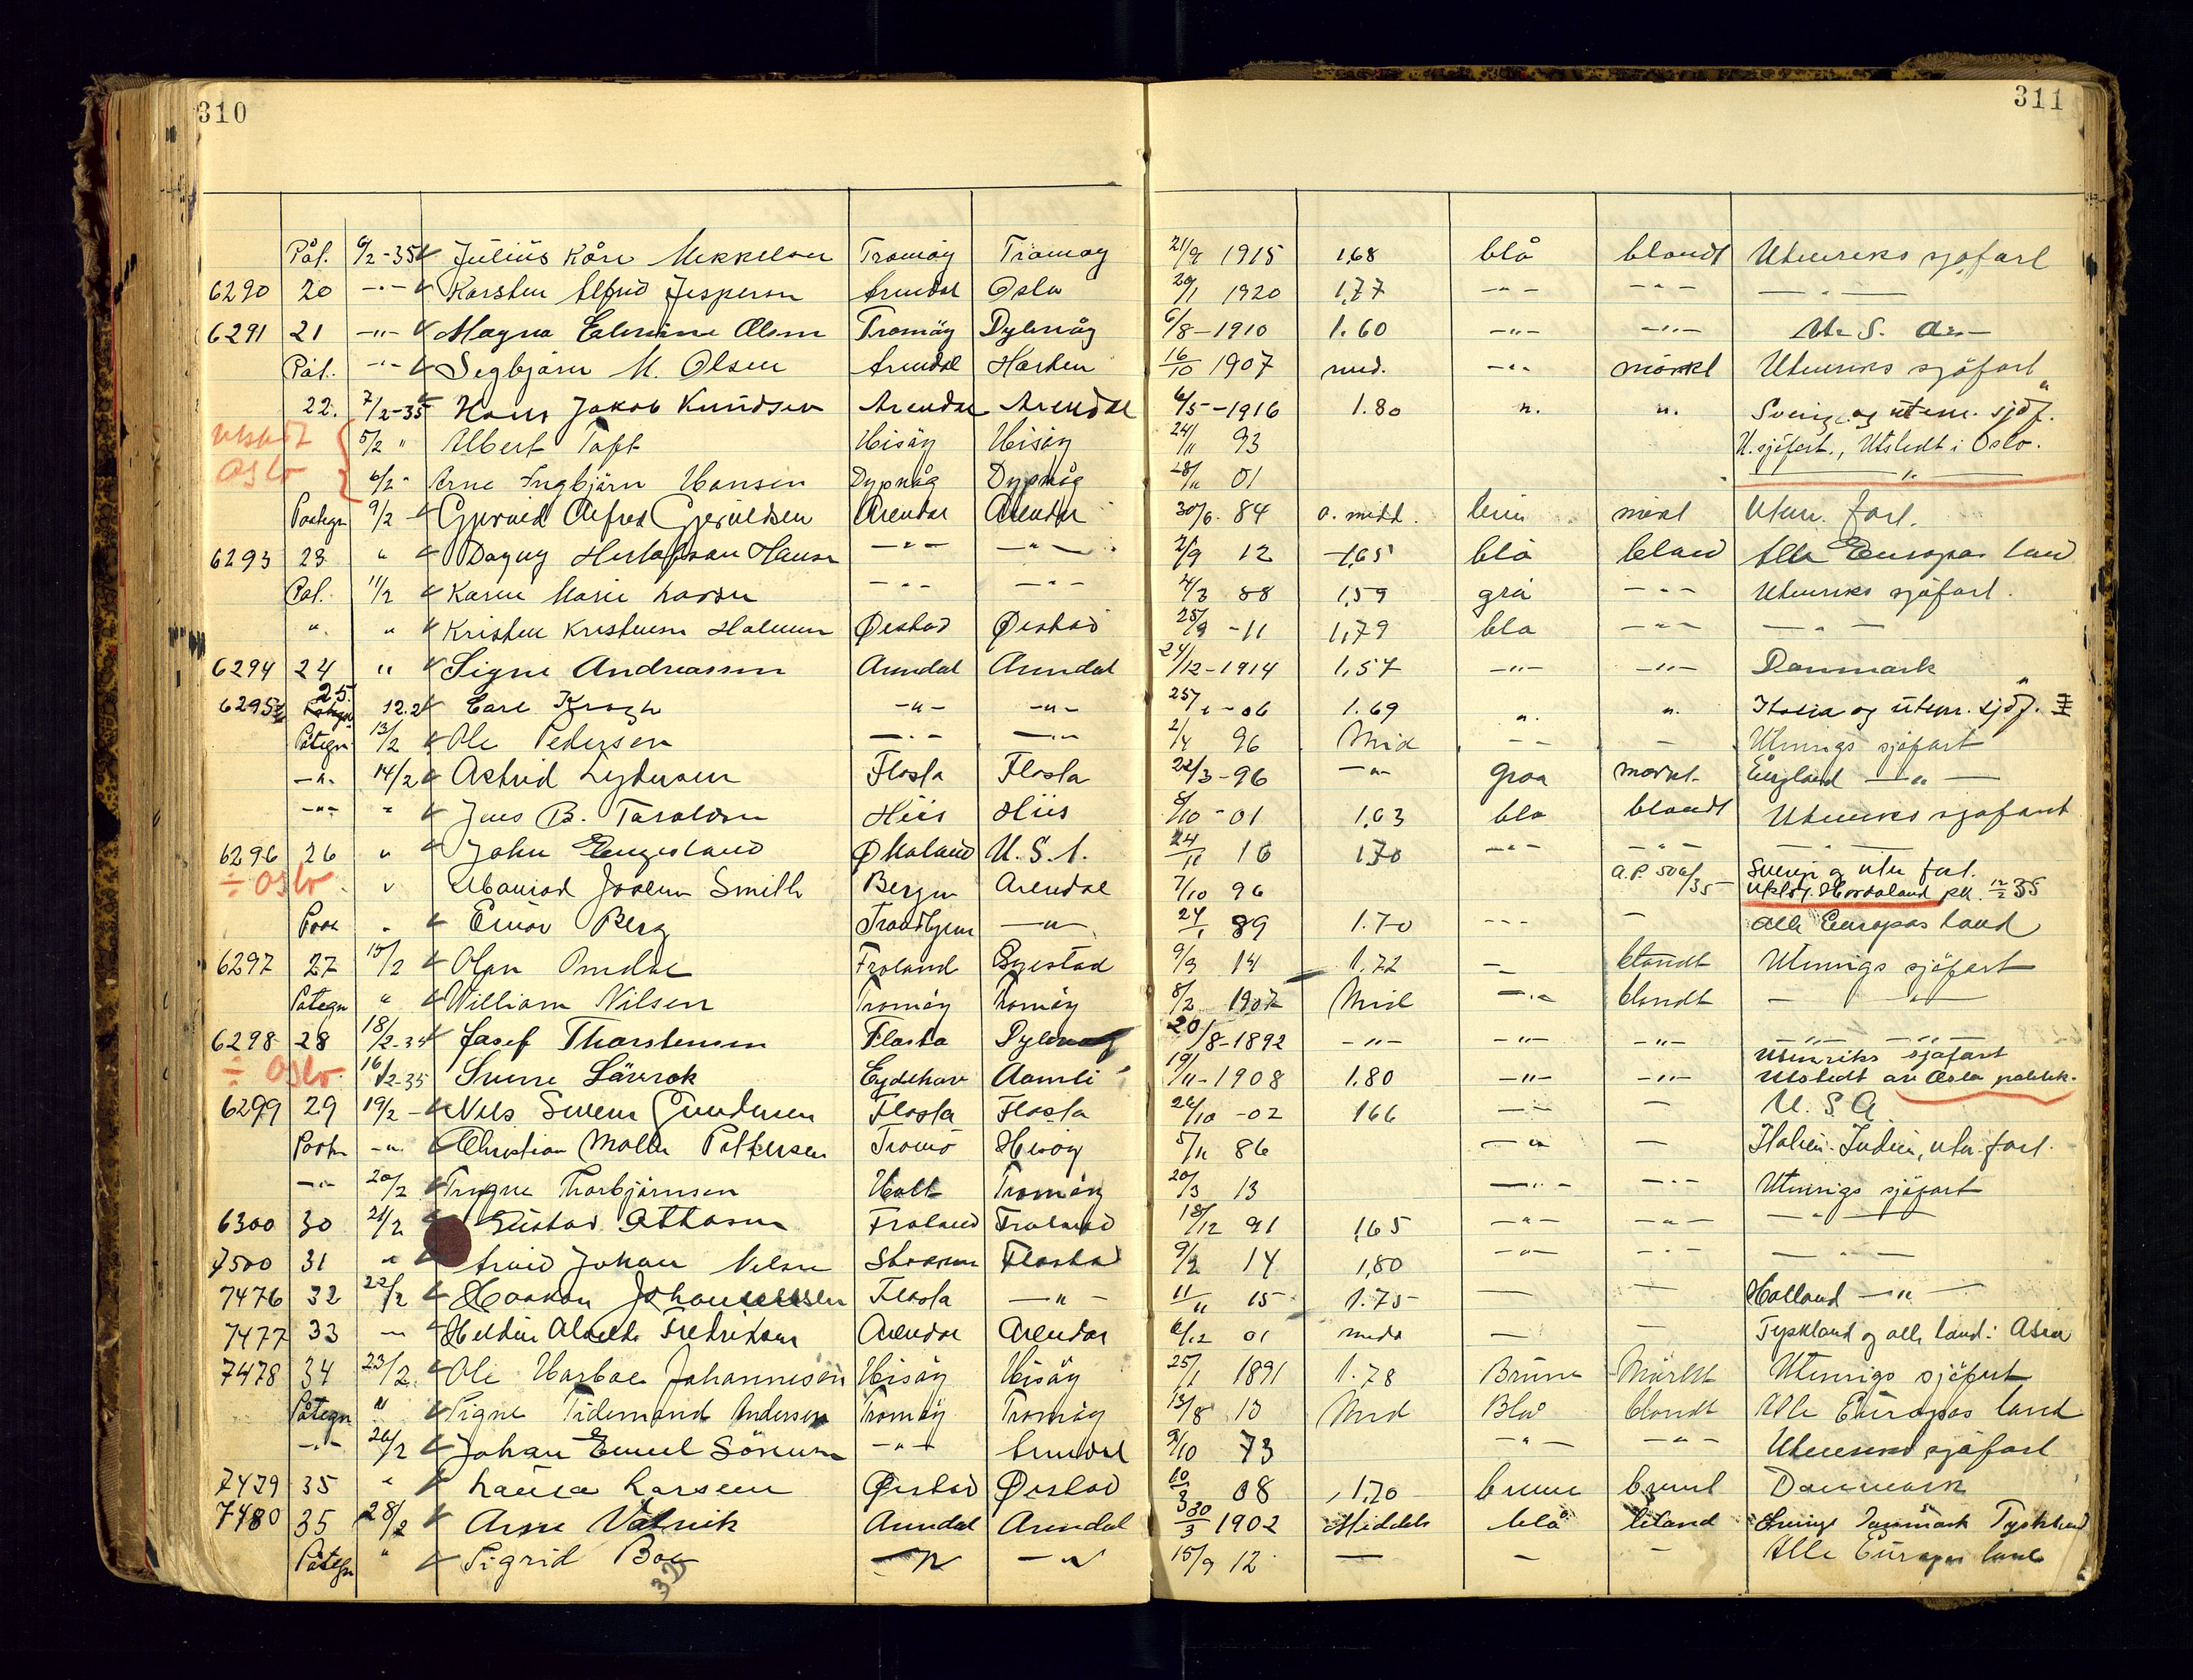 310 311
Pål. 6/2-35 Julius Kåre Mikkelsen Tromöy Tromöy 21/9 1915 1,68 blå blondt Utenriks sjöfart
6290 20 -"- Karsten Alfred Jespersen Arendal Oslo 29/1 1920 1,77 -"- -"- -"-
6291 21 -"- Magna Elmine Olsen Tromöy Dypvåg 6/8-1910 1.60 -"- -"- U. S. A.
Pål. -"- Segbjörn M. Olsen Arendal 16/10 1907 med. -"- mörkt Utenriks sjöfart
22. 7/2-35 Hans Jakob Knudsen Arendal Arendal 6/5-1916 1.80 ". ". Sverige og utenr. sjöf.
5/2 " Albert Toft Hisöy Hisöy 24/11 93 U. sjöfart., Utstedt i Oslo.
Oslo 6/2 " Arne Ingbjörn Hansen Dypvåg Dypvåg 28/11 01 -"-
Påtegn 9/2 Gjerulf Alfred Gjeruldsen Arendal Arendal 30/6. 84 o. midd. brun mörkt Utenr. fart.
6293 23 " Dagny Hansen -"- -"- 2/9 12 1,65 blå blond Alle Europas land
Pål. 11/2 Karen Marie Larsen -"- -"- 4/3 88 1,59 grå -"- Utenriks sjöfart.
" " Kristen Kristensen Öiestad Öiestad 25/9 -11 1,79 blå -"- -"-
6294 24 " Signe Andreassen Arendal Arendal 24/12-1914 1,57 -"- -"- Danmark
6295 25. 12.2 Carl Krogh -"- -"- 25/1-06 1.69 ". ". Italia og utenr. sjöf.
Påtegn 13/2 Ole Pedersen -"- -"- 2/4 96 Mid -"- - Utenrigs sjöfart
-"- 14/2 Astrid Lydersen Flosta Flosta 22/3-96 -"- graa mörkt England -"-
-"- " Jens B. Taraldsen Hiis Hiis 8/10-01 1,63 blå blondt Utenriks sjöfart
6296 26 " John Engesland U.S.A. 24/11 16 1,70 -"- -"- -"-
÷ Oslo " Smith Bergen Arendal 7/10 96 A.P. 506/35 Sverige og uten fart. Hordaland pk. 12/2 35
" Einar Berg Trondhjem -"- 24/1 89 1.70 -"- - Alle Europas land
6297 27 15/2 Olav Omdal Froland Öyestad 9/3 14 1.72 - blondt Utenrigs sjöfart
Påtegn " William Nilsen Tromöy Tromöy 8/2 1907 Mid -"- blondt -"-
6298 28 18/2-35 Josef Thorstensen Flosta Dypvåg 20/8-1892 -"- -"- -"- -"- -"-
÷ Oslo. 16/2-35 Sverre Eydehavn Aamli 19/11-1908 1.80 -"- -"- Utenriks sjöfart Utstedt av Oslo politik.
6299 29 19/2 Nils Severin Gundersen Flosta Flosta 26/10-02 166 -"- - U. S. A.
-"- Christian Möller Pettersen Tromö Hisöy 5/11 86 -"- - Italien. Indien, uten. fart.
-"- 20/2 Trygve Thorbjörnsen Holt Tromöy 20/3 13 -"- -"- Utenrigs sjöfart
6300 30 21/2 Gustav Froland Froland 18/12 91 1,65 -"- -"- -"-
7500 31 " Arvid Johan Nilsen Flosta 9/2 14 1,80 -"- -"- -"-
7476 32 22/2 Haakon Johannessen Flosta -"- 11/11 15 1.75 - - Holland -"-
7477 33 -"- Fredriksen Arendal Arendal 6/12 01 - - Tyskland og alle land i Asia
7478 34 23/2 Ole Harboe Johannesen Hisöy Hisöy 25/1 1891 1.78 Brune Mörkt Utenrigs sjöfart
Påtegn " Signe Tidemand Andersen Tromöy Tromöy 13/8 13 Mid Blå blondt Alle Europas land
-"- 26/2 Johan Emil Sörensen -"- Arendal 9/10 73 -"- -"- Utenriks sjöfart
7479 35 " Laura Larsen Öiestad Öiestad 10/3 08 1,70 brune brunt Danmark
7480 35 28/2 Arne Arendal Arendal 30/3 1902 Middels blå blond Sverige Danmark Tyskland
Påtegn " Sigrid Boe -"- -"- 15/9 12 - - - Alle Europas land